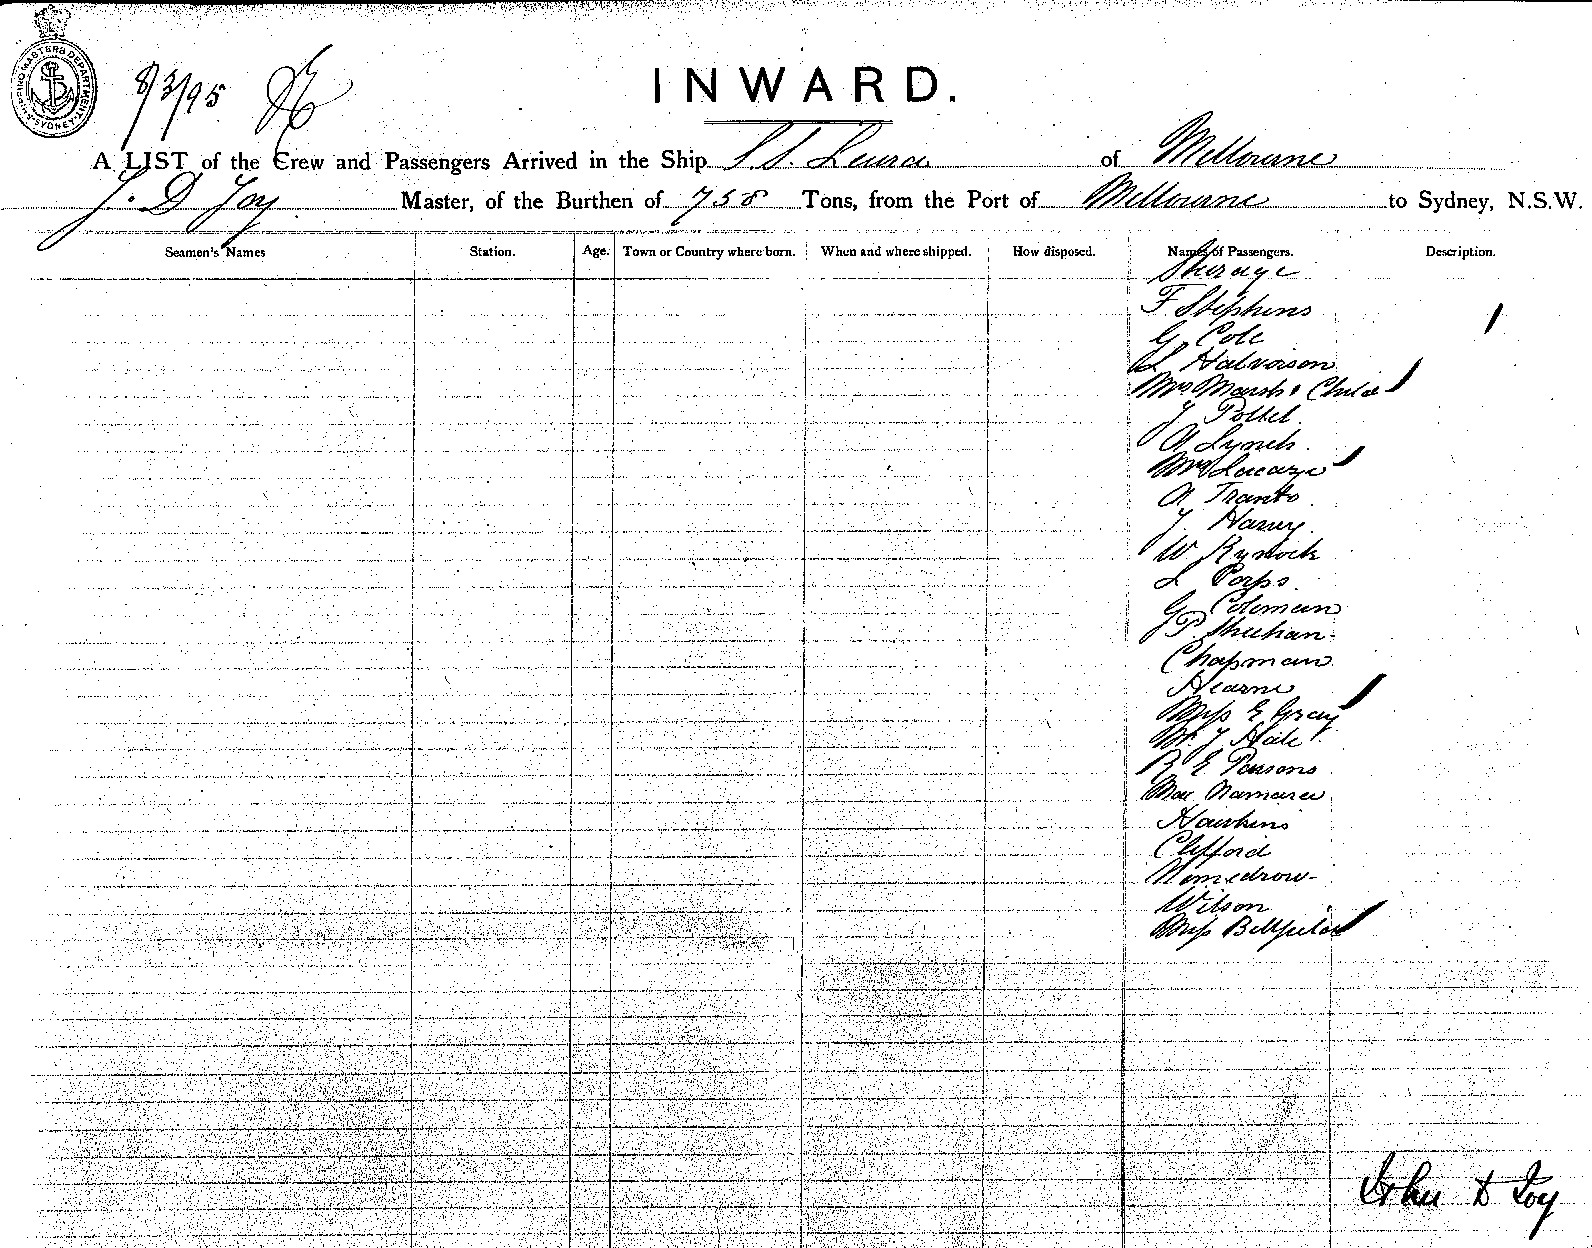 SHIPPING MASTERS DEPARTMENT SYDNEY
8/3/95
INWARD.
A LIST of the Crew and Passengers Arrived in the Ship S.S. of Melbourne
J. D Joy Master, of the Burthen of 758 Tons, from the Port of Melbourne to Sydney, N.S.W.
Seamen's Names Station. Age. Town or Country where born. When and where shipped. How disposed. Names of Passengers. Description.
Steerage
F Stephens
G Cole
L Halvorson
Mrs Marsh & Child
J Pottel
A Lynch
Mrs
A Tranto
J Harvey
W Kynock
L
G Coleman
P Sheehan
Chapman
Hearne
Miss E Gray
Mr J Hale
R E Parsons
Mac Namara
Hawkins
Clifford
Wilson
Miss
John D Joy